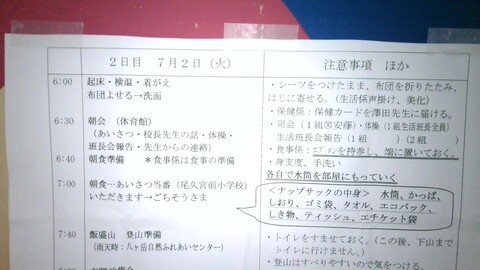 ２日目　７月２日（火）
注意事項　ほか
6:00
起床・検温・着がえ
布団よせる→洗面
・シーツをつけたまま、布団を折りたたみ、
はじに寄せる。（生活係声掛け、美化）
・保健係：保健カードを澤田先生に届ける。
6:30
朝会　（体育館）
（あいさつ・校長先生の話・体操・
生活班長会報告（１組　　　）（２組　　　）
班長会報告・先生からの連絡）
・食事係：エプロンを持参し、端に置いておく。
6:40
朝食準備　＊食事係は食事の準備
・身支度、手洗い
各自で水筒を部屋にもっていく
7:00
朝食…あいさつ当番（尾久宮前小学校）
いただきます→ごちそうさま
＜ナップサックの中身＞　水筒、かっぱ、
しおり、ゴミ袋、タオル、エコバック、
しき物、ティッシュ、エチケット袋
7:40
飯盛山　登山準備
（雨天時：八ヶ岳自然ふれあいセンター）
・トイレをすませておく。（この後、下山まで
トイレに行けません。）
・登山はすべりやすいので気をつける。